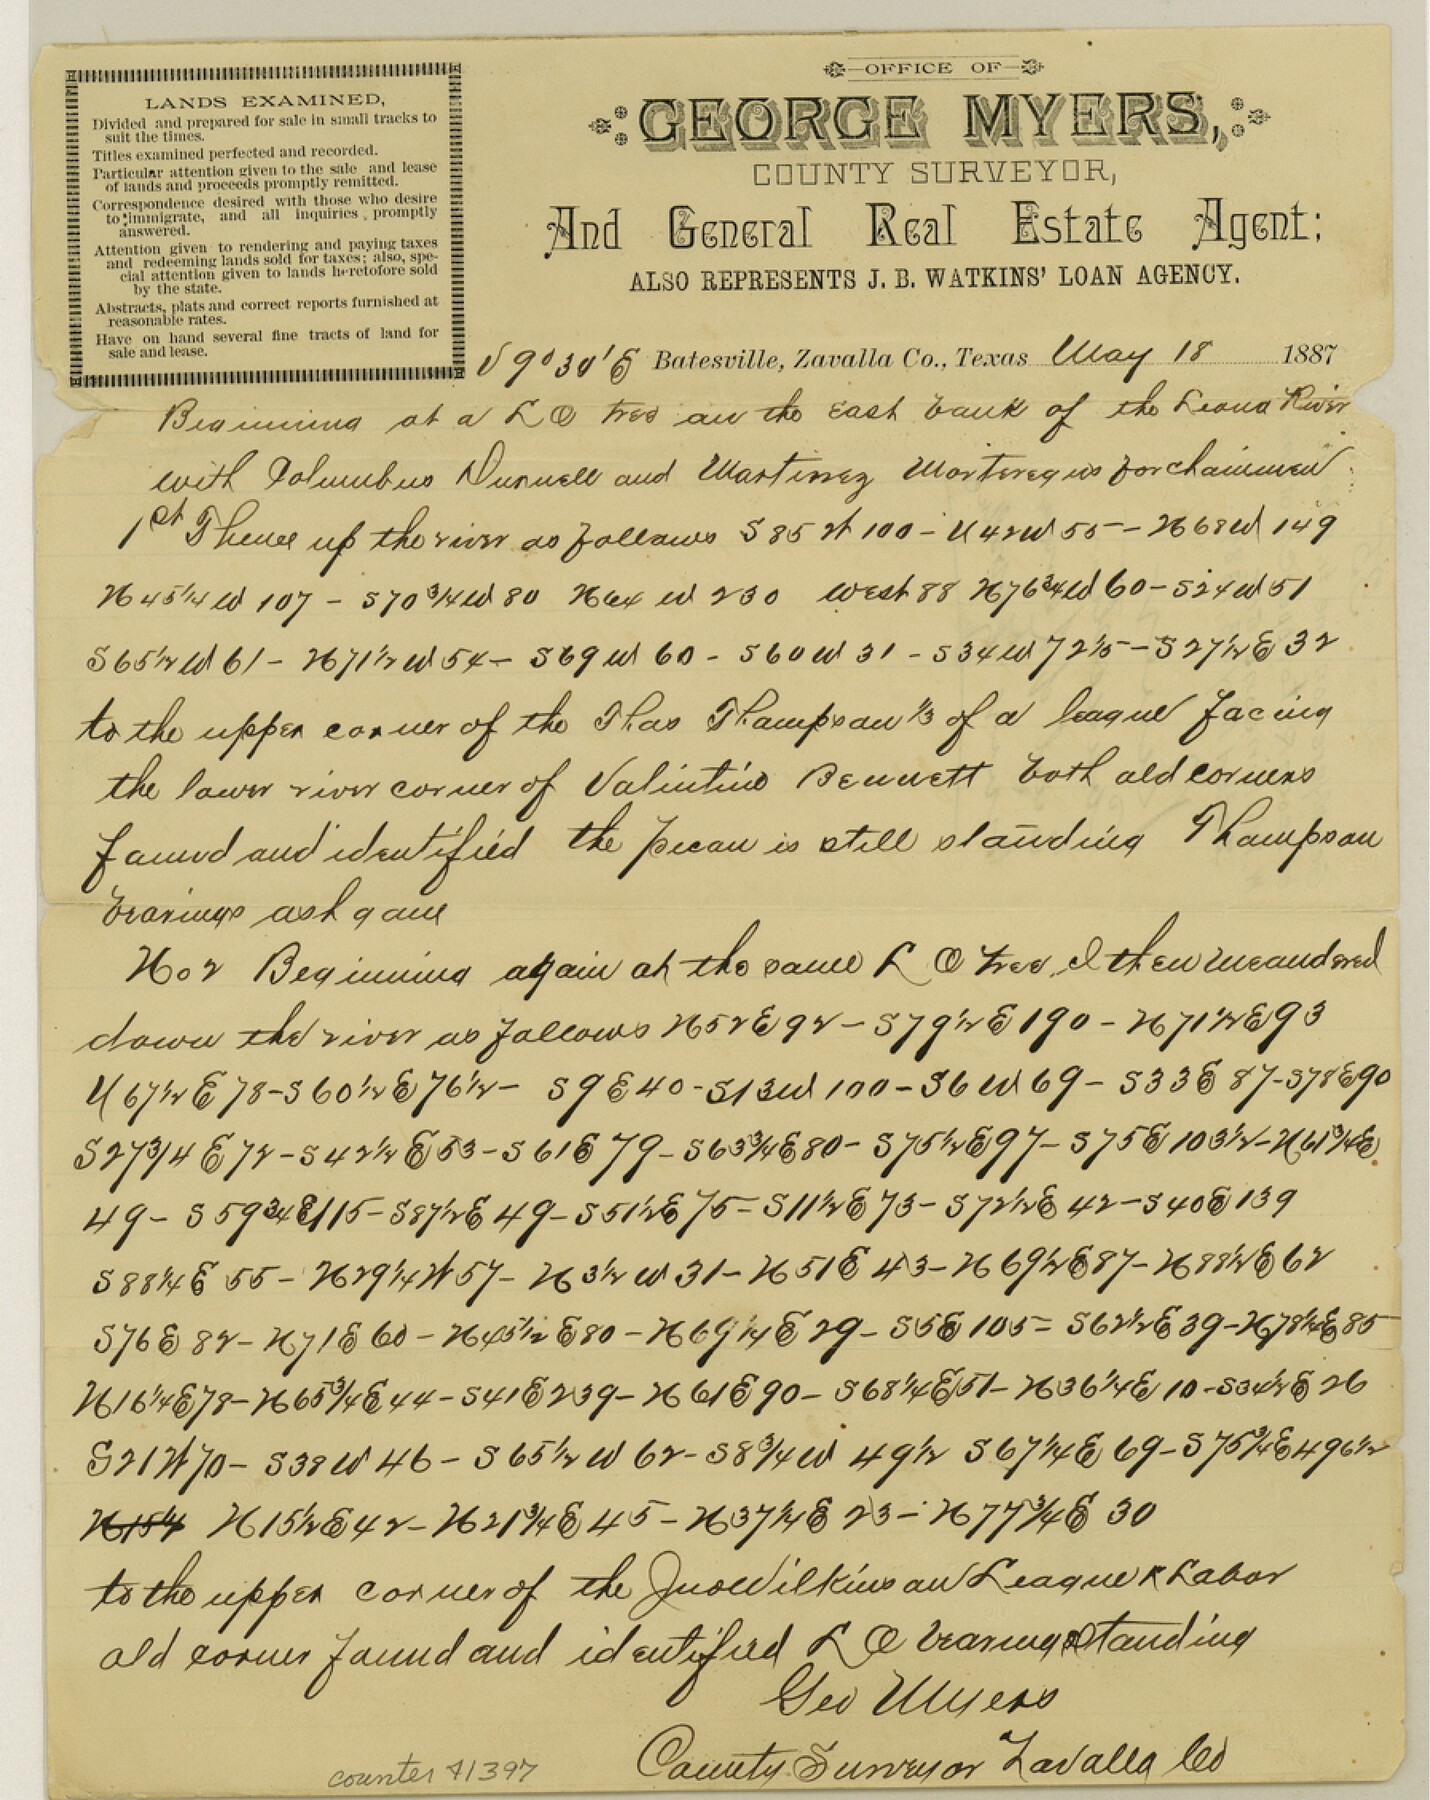 LANDS EXAMINED,
Divided and prepared for sale in small tracks to
suit the times.
Titles examined perfected and recorded.
Particular attention given to the sale and lease
of lands and proceeds promptly remitted.
Correspondence desired with those who desire
to immigrate, and all inquiries promptly
answered.
Attention given to rendering and paying taxes
and redeeming lands sold for taxes; also, spe-
cial attention given to lands heretofore sold
by the state.
Abstracts, plats and correct reports furnished at
reasonable rates.
Have on hand several fine tracts of land for
sale and lease.
OFFICE OF
GEORGE MYERS,
COUNTY SURVEYOR,
And General Real Estate Agent;
ALSO REPRESENTS J. B. WATKINS' LOAN AGENCY.
V 9° 30' E Batesville, Zavalla Co., Texas May 18 1887
Beginning at a L O tree on the East bank of the Leona River
with Columbus and Martinez for chainmen
1st Thence up the river as follows S 85 W 100 - N 42 W 55 - N 68 W 149
N 45 1/4 W 107 - S 70 3/4 W 80 N 64 W 230 West 88 N 76 3/4 W 60 - S 24 W 51
S 65 1/2 W 61 - N 71 1/2 W 54 - S 69 W 60 - S 60 W 31 - S 34 W 72 1/5 - S 27 1/2 E 32
to the upper corner of the Thos Thompson 1/3 of a league facing
the lower river corner of Valintino Bennett both old corners
found and identified the pecan is still standing Thompson
bearings ash gone
No 2 Beginning again at the same L O tree I then meandered
down the river as follows N 52 E 92 - S 79 1/2 E 190 - N 71 1/2 E 93
N 67 1/2 E 78 - S 60 1/2 E 76 1/2 - S 9 E 40 - S 13 W 100 - S 6 W 69 - S 33 E 87 - S 78 E 90
S 27 3/4 E 72 - S 42 1/2 E 53 - S 61 E 79 - S 63 3/4 E 80 - S 75 1/2 E 97 - S 75 E 103 1/2 - N 61 3/4 E
49 - S 59 3/4 E 115 - S 87 1/2 E 49 - S 51 1/2 E 75 = S 11 1/2 E 73 - S 72 1/2 E 42 - S 40 E 139
S 88 1/4 E 55 - N 29 1/4 W 57 - N 3 1/2 W 31 - N 51 E 43 - N 69 1/2 E 87 - N 88 1/2 E 62
S 76 E 82 - N 71 E 60 - N 45 1/2 E 80 - N 69 1/4 E 29 - S 5 E 105 = S 62 1/2 E 39 - N 78 1/4 E 85
N 16 1/4 E 78 - N 65 3/4 E 44 - S 41 E 239 - N 61 E 90 - S 68 1/4 E 51 - N 36 1/4 E 10 - S 34 1/2 E 26
S 21 W 70 - S 38 W 46 - S 65 1/2 W 62 - S 8 3/4 W 49 1/2 S 67 1/4 E 69 - S 75 3/4 E 496 1/2
N 15 1/4 N 15 1/2 E 42 - N 21 3/4 E 45 - N 37 1/4 E 23 - N 77 3/4 E 30
to the upper corner of the Jno Wilkinson League & Labor
old corner found and identified L O bearings standing
Geo Myers
County Surveyor Zavalla Co
counter 41397